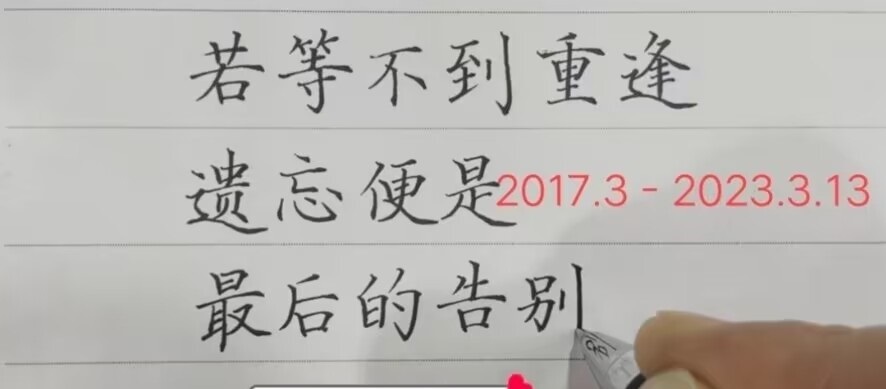 若等不到重逢
遗忘便是2017.3 - 2023.3.13
最后的告别